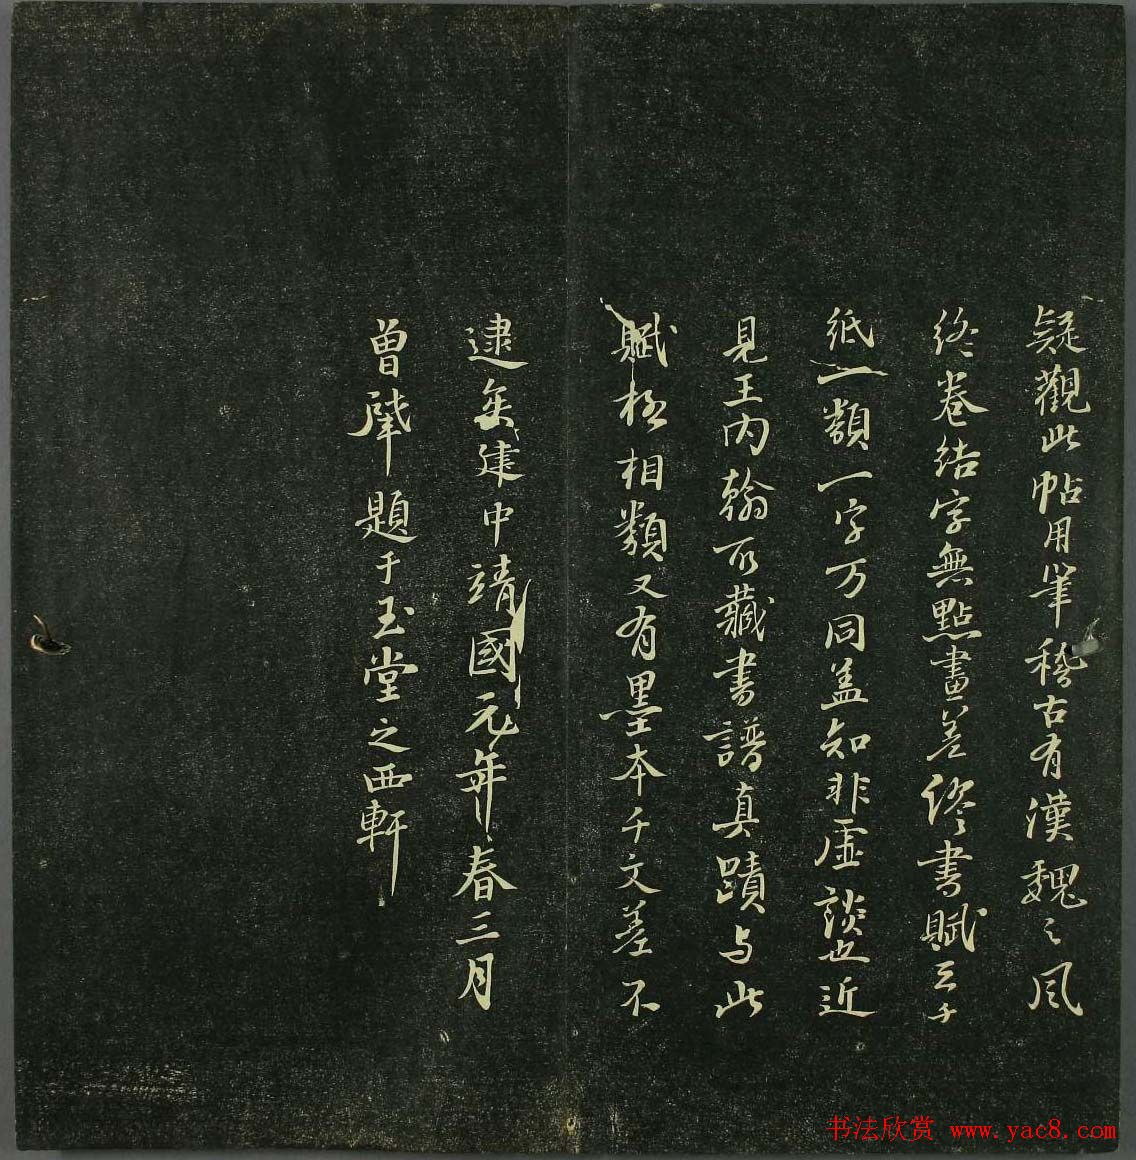 疑觀此帖用筆稽古有漢魏之風
終卷结字無點畫差缪書賦云千
紙一類一字万同盖知非虚談也近
見王内翰所藏書譜真蹟与此
賦極相類又有墨本千文差不
逮矣建中靖國元年春三月
曾肇題于玉堂之西軒
书法欣赏 www.yac8.com